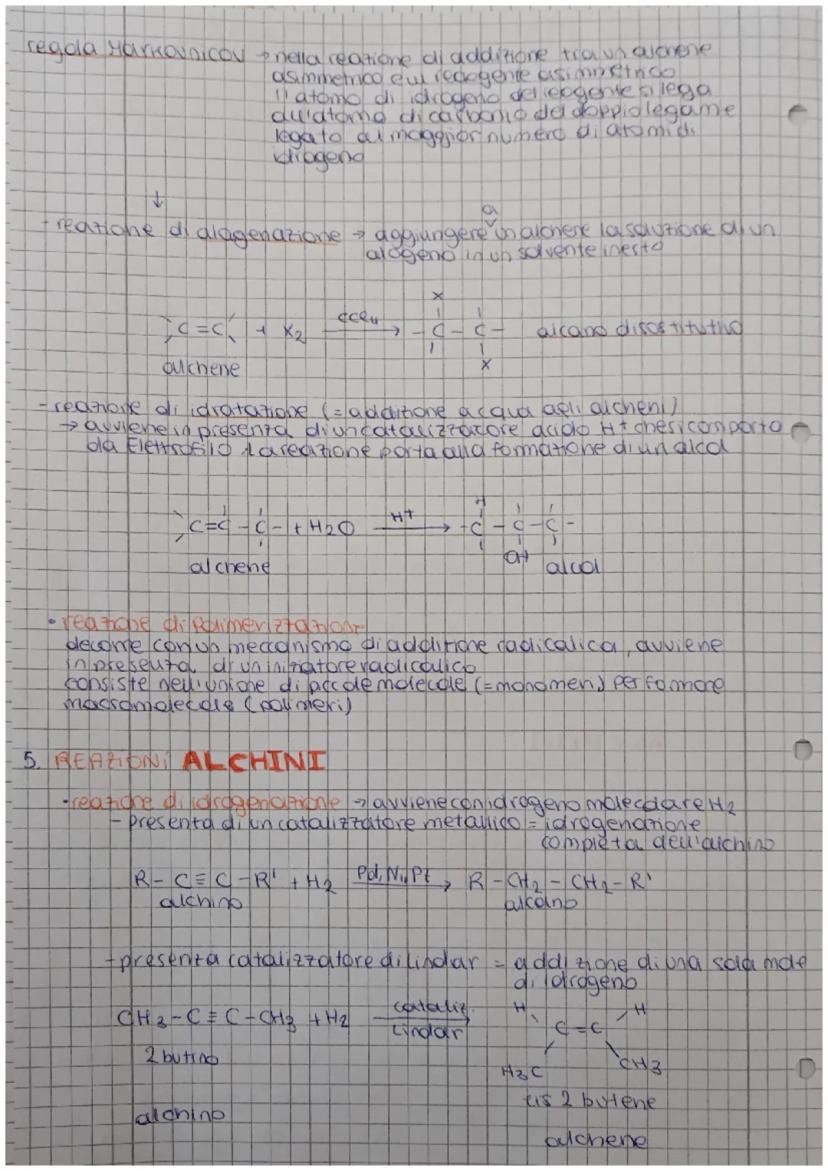 regola Markovnicov → nella reazione di addizione tra un alchene
asimmetrico e un reagente asimmetrico
l'atomo di idrogeno del reagente si lega
all'atomo di carbonio del doppio legame
legato al maggior numero di atomi di
idrogeno
↓
- reazione di alogenazione → aggiungere a un alchene la soluzione di un
alogeno in un solvente inerte
X
C=C + X2 CCl4 → -C-C- alcano disostitutivo
X
alchene
- reazione di idratazione (= addizione acqua agli alcheni)
→ avviene in presenza di un catalizzatore acido H+ che si comporta
da Elettrofilo. La reazione porta alla formazione di un alcol
H
C=C-C- + H2O H+ → -C-C-C-
OH
alchene alcol
• reazione di Polimerizzazione
decorre con un meccanismo di addizione radicalica, avviene
in presenza di un iniziatore radicalico
consiste nell'unione di piccole molecole (= monomeri) per formare
macromolecole (polimeri)
5. REAZIONI ALCHINI
• reazione di idrogenazione → avviene con idrogeno molecolare H2
- presenza di un catalizzatore metallico = idrogenazione
completa dell'alchino
R-C≡C-R' + H2 Pd, Ni, Pt → R-CH2-CH2-R'
alchino alcano
- presenza catalizzatore di lindar = addizione di una sola mole
di idrogeno
CH3-C≡C-CH3 + H2 cataliz. Lindar → H H
C=C
2 butino H3C CH3
cis 2 butene
alchino alchene